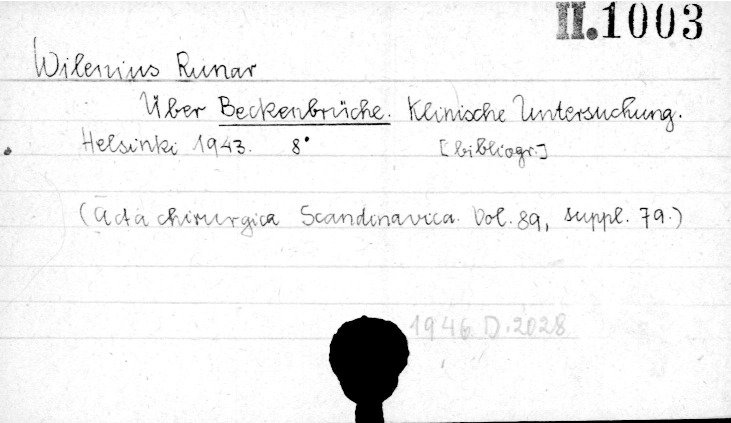 II.1003
Wilenius Runar
Über Beckenbrüche. Klinische Untersuchung.
Helsinki 1943. 8° [bibliogr.]
(Acta chirurgica Scandinavica. Vol. 89, suppl. 79.)
1946 D.2028